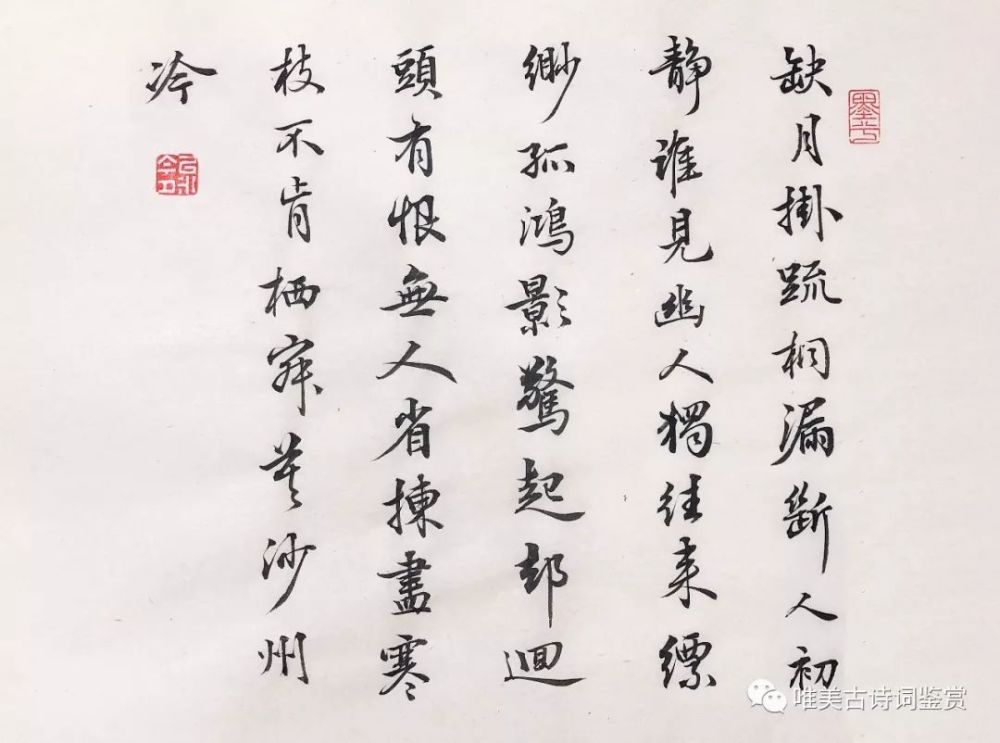 缺月掛疏桐漏斷人初
靜誰見幽人獨往来縹
緲孤鴻影驚起却迴
頭有恨無人省揀盡寒
枝不肯栖寂寞沙州
冷
唯美古诗词鉴赏